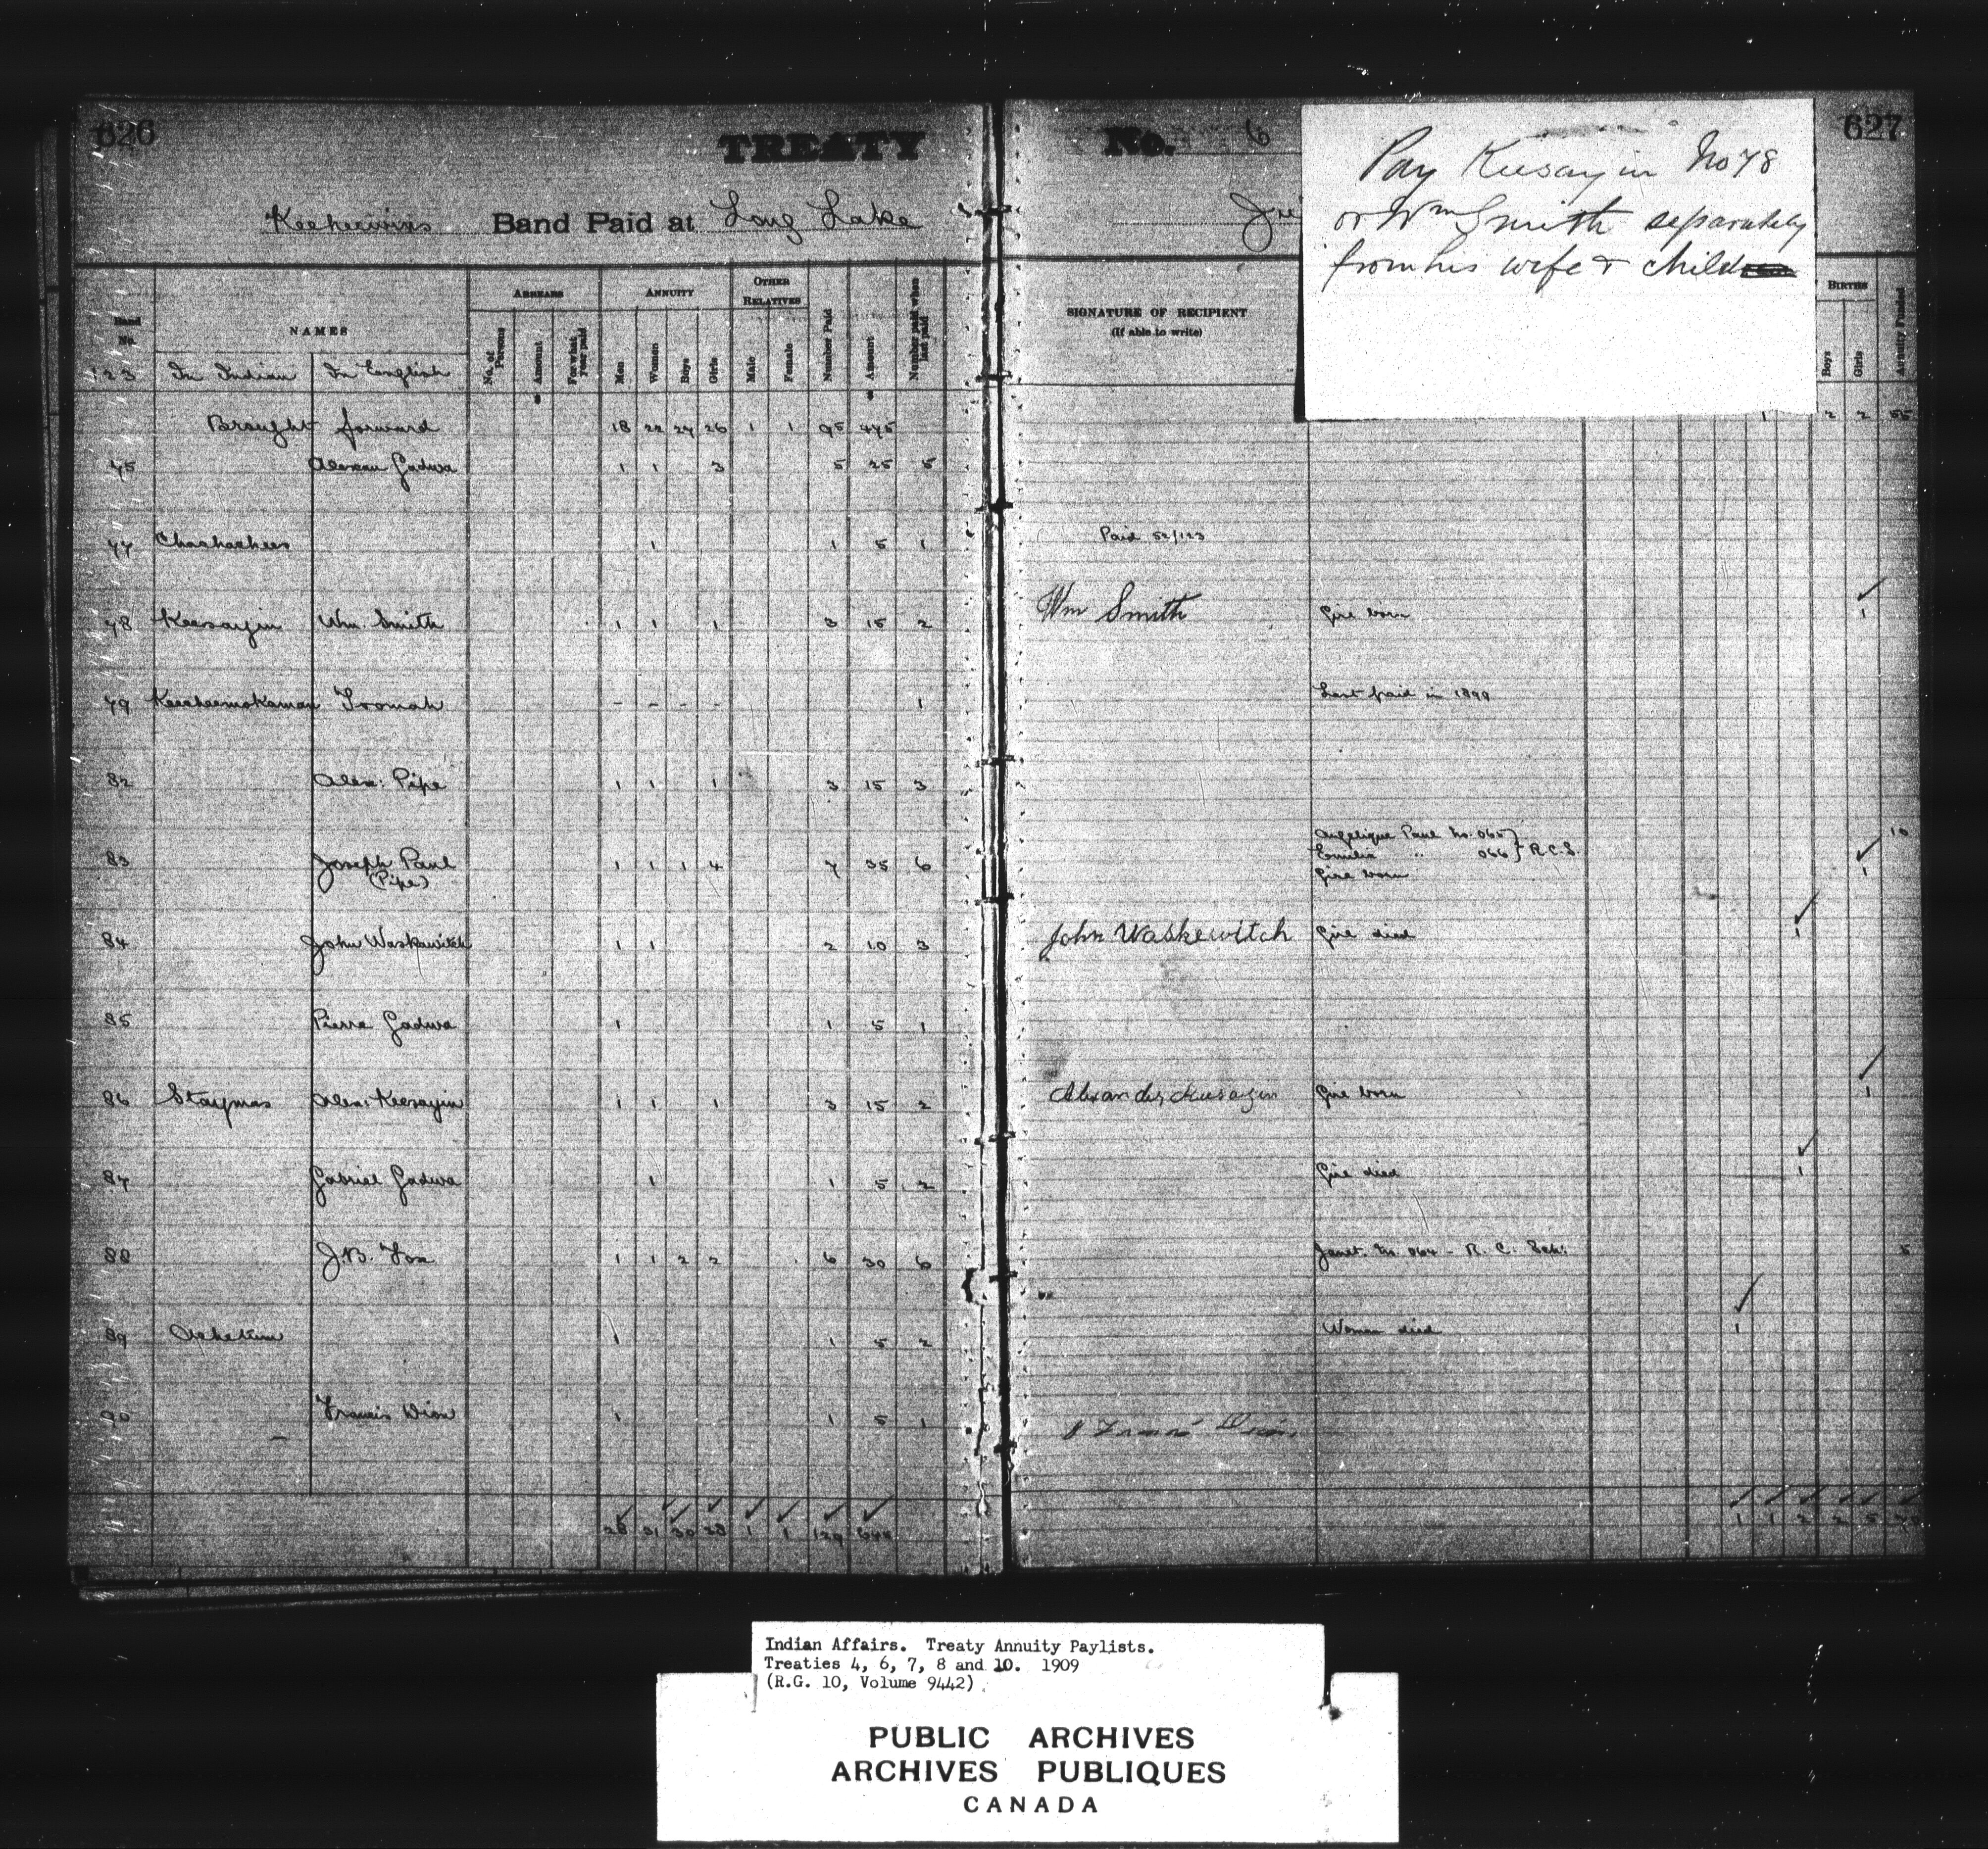 626
TREATY
Keeheewins Band Paid at Long Lake
Band No. NAMES ARREARS ANNUITY OTHER RELATIVES
No. of Persons Amount For what year paid Men Women Boys Girls Male Female Number Paid Amount Number paid when last paid
123 In Indian In English
Brought forward 18 22 27 26 1 1 95 475
75 Gadwa 1 1 3 5 25 5
77 Chachachees 1 1 5 1
78 Keesayin Wm. Smith 1 1 1 3 15 2
79 Keecheemokaman Iromah - - - - 1
82 Alex: Pipe 1 1 1 3 15 3
83 Joseph Paul 1 1 1 4 7 35 6
(Pipe)
84 John Waskawitch 1 1 2 10 3
85 Pierre Gadwa 1 1 5 1
86 Staymas Alex: Keesayin 1 1 1 3 15 2
87 Gabriel Gadwa 1 1 5 2
88 J.B. Fox 1 1 2 2 6 30 6
89 1 1 5 2
90 Francis Dion 1 1 5 1
28 31 30 38 1 1 129 645
No. 6
627
Pay Keesayin No 78
or Wm Smith separately
from his wife & child
SIGNATURE OF RECIPIENT
(If able to write)
BIRTHS
Boys Girls Annuity Funded
1 2 2 55
Paid 52/123
Wm Smith Girl born 1
Last paid in 1899
Angelique Paul No. 065 } 10
Emilia " 066 } R.C.S.
Girl born 1
John Waskewitch Girl died 1
Alexander Keesayin Girl born 1
Girl died 1
Janet. No. 064 - R. C. Sch: 5
Woman died 1
Francis Dion
1 1 2 2 5 70
Indian Affairs. Treaty Annuity Paylists.
Treaties 4, 6, 7, 8 and 10. 1909
(R.G. 10, Volume 9442)
PUBLIC ARCHIVES
ARCHIVES PUBLIQUES
CANADA